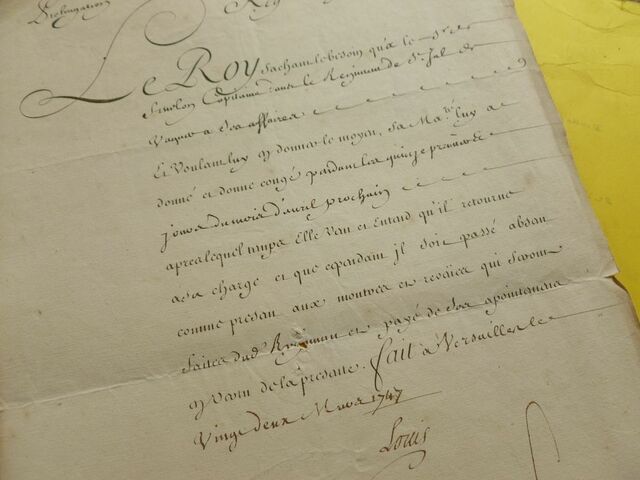 Prolongation
Le Roy sachant le besoin qu'a le Sr. de
Capitaine dans le Regiment de St. Jal de
Vaquer a ses affaires
Et Voulant luy en donner le moyen, Sa Ma.té luy a
donné et donne congé pendant les quinze premiers
jours du mois d'avril prochain
apres lequel temps Elle veut et Entend qu'il retourne
a sa charge et que cependant jl soit passé absent
comme present aux montres et reveües qui seront
faites dud. Regiment et payé de ses apointemens
en vertu de la presente. fait a Versailles le
Vingt deux Mars 1747
Louis